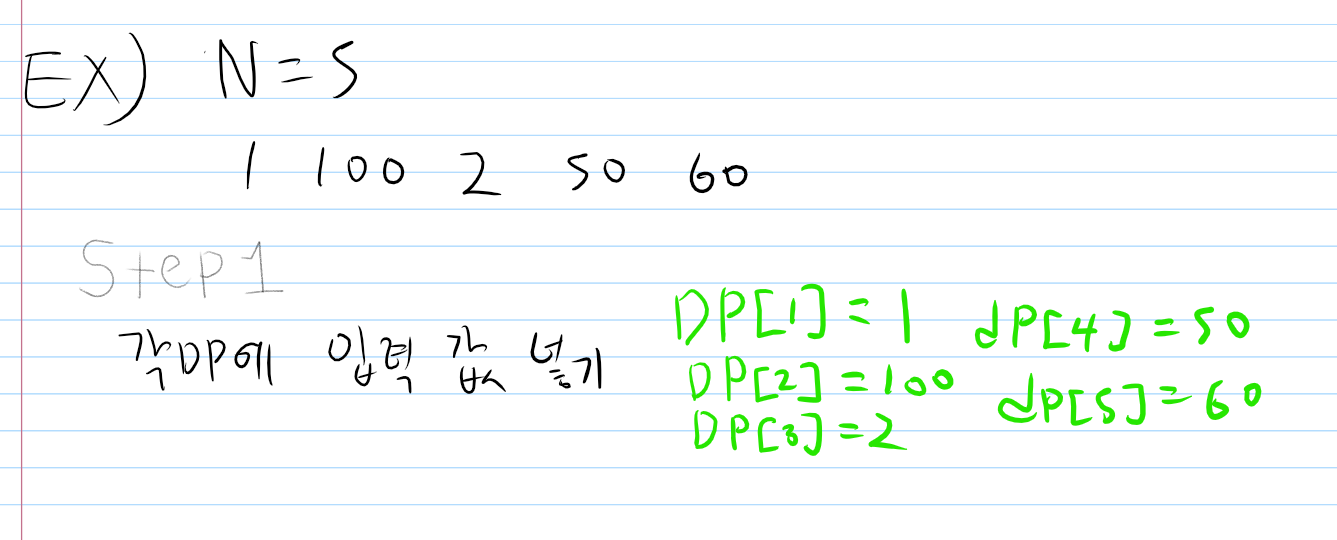 EX) N=5
1 100 2 50 60
Step1
각DP에 입력 값 넣기
DP[1]=1
DP[2]=100
DP[3]=2
dP[4]=50
dP[5]=60